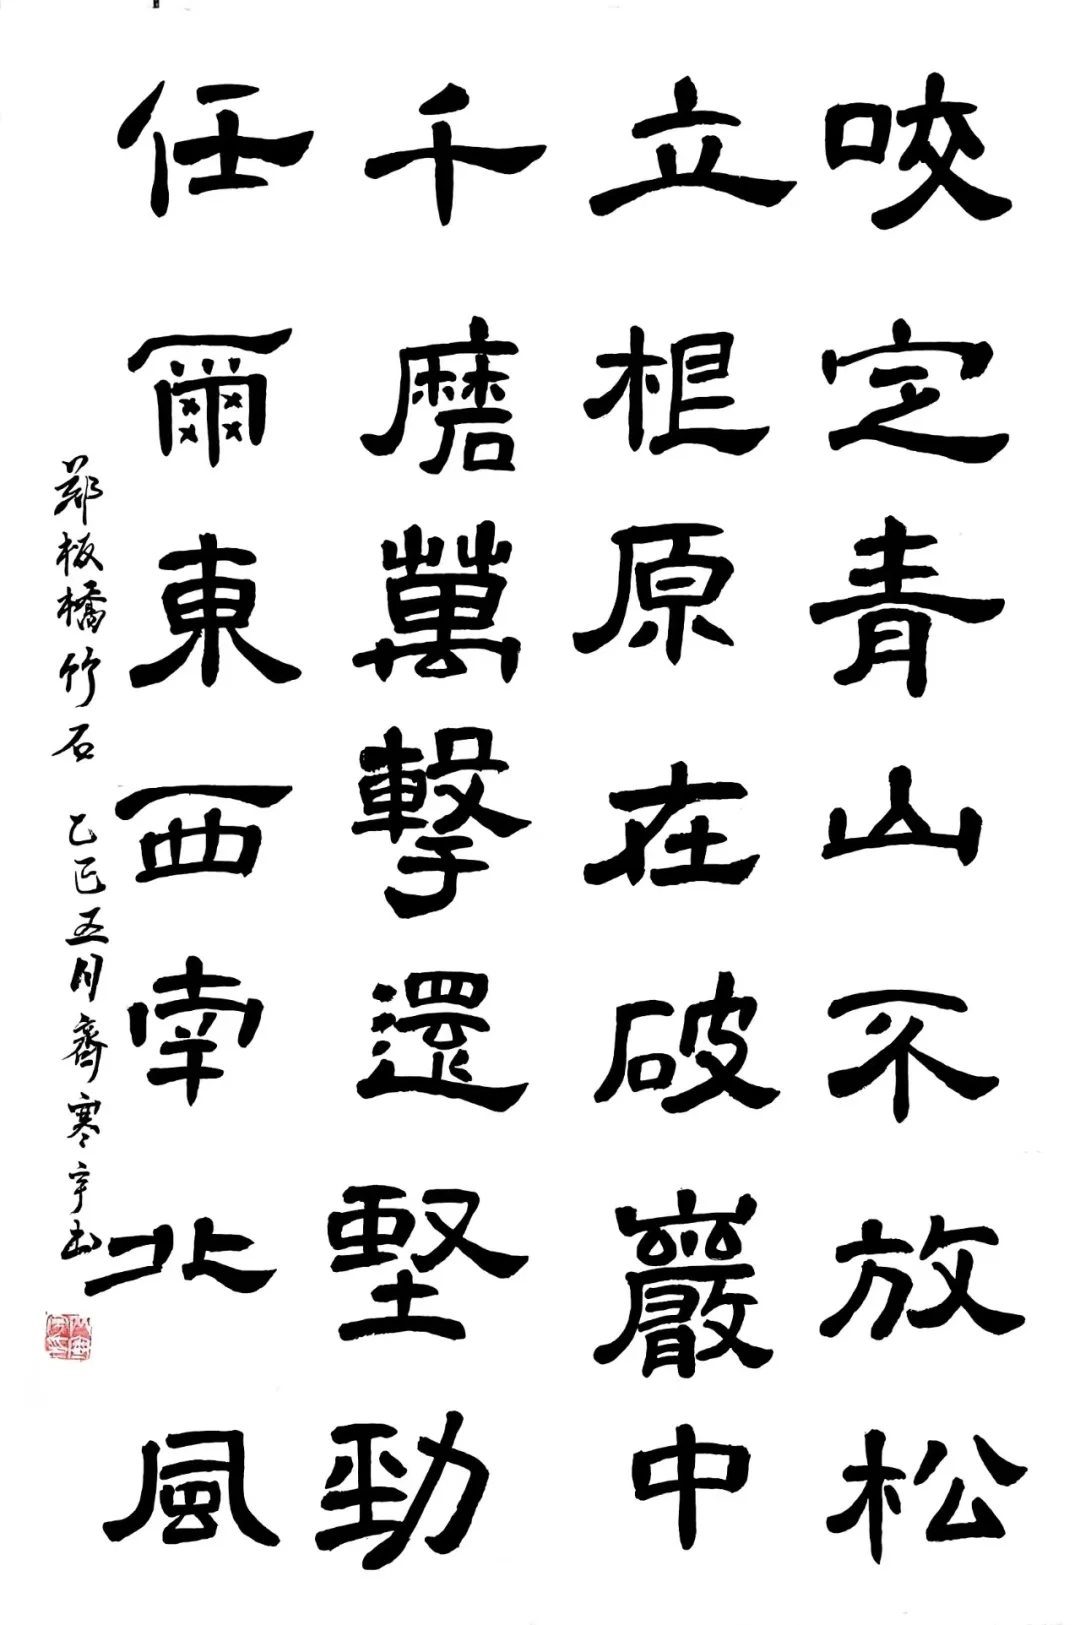 咬定青山不放松
立根原在破巖中
千磨萬擊還堅勁
任爾東西南北風
鄭板橋竹石 乙巳五月齊寒宇书